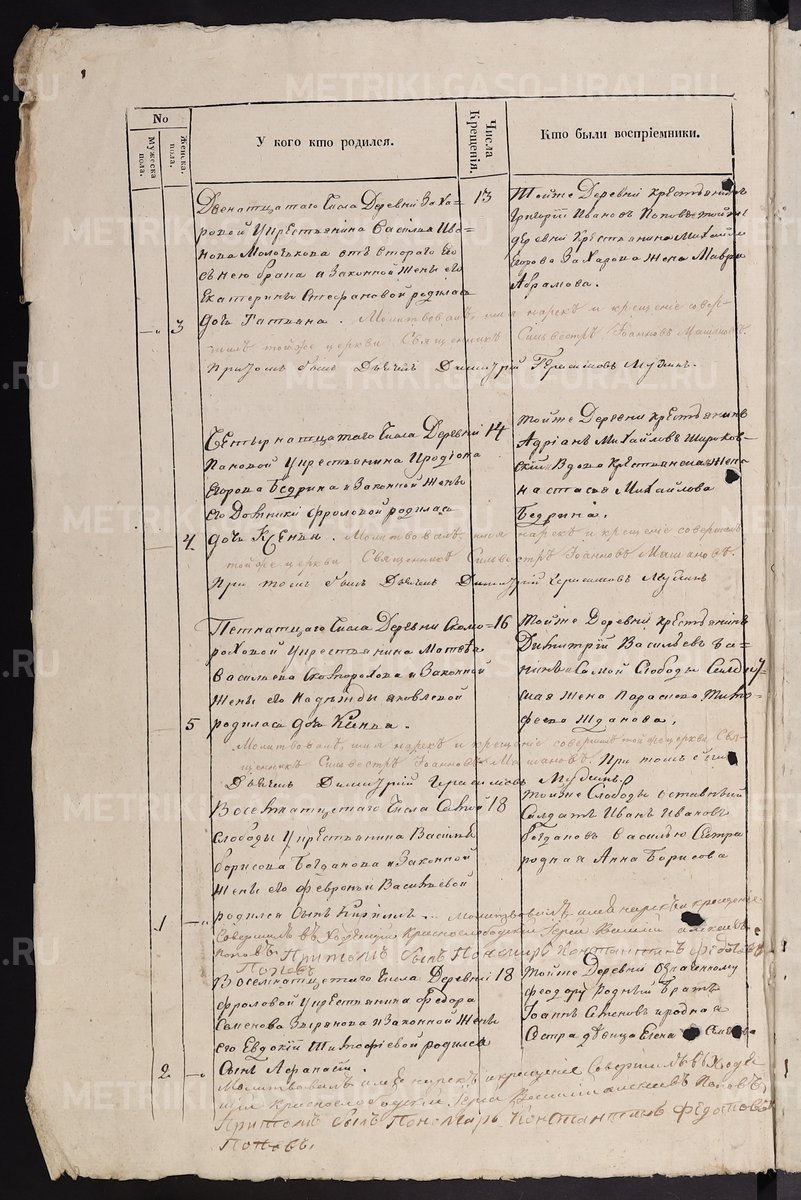 No
Мужеска пола.
Женска. пола.
У кого кто родился.
Числа Крещенія.
Кто были воспріемники.
Двенатцатаго Числа Деревни Заха=
ровой у крестьянина Василия Ива=
нова Молочкова отъ втораго его
съ нею брака и Законной жены его
Екатерины Стефановой родилась
3 дочь Татьяна. Молитвовалъ, имя нарекъ и крещеніе совер-
шилъ тойже церкви Священникъ Сильвестръ Іоанновъ Машановъ.
Притомъ былъ Дьячекъ Димитрій Герасимовъ Мудинъ.
13
Тойже Деревни крестьянинъ
Григорій Ивановъ Поповъ тойже
деревни крестьянина Михайла
Егорова Захарова жена Мавра
Абрамова.
Четырнатцатаго Числа Деревни
Пановой у крестьянина Иродіона
Егорова Бедрина и Законной жены
его Домники Фроловой родилась
4. дочь Ксенья. Молитвовалъ, имя нарекъ и крещеніе совершилъ
тойже церкви Священникъ Сильвестръ Іоанновъ Машановъ.
При томъ былъ Дьячекъ Димитрій Герасимовъ Мудинъ
14
Тойже Деревни крестьянинъ
Адріанъ Михайловъ Широков-
скій Вдова крестьянская жена
Настасья Михайлова
Бедрина.
Петнатцаго Числа Деревни Скомо=
роховой у крестьянина Матвея
Васильева Скоморохова и Законной
жены его Надежды Яковлевой
5 родилась дочь Ксенья.
Молитвовалъ, имя нарекъ и крещеніе совершилъ тойже церкви Свя-
щенникъ Сильвестръ Іоанновъ Машановъ. При томъ былъ
Дьячекъ Димитрій Герасимовъ Мудинъ.
16
Тойже Деревни крестьянинъ
Димитрій Васильевъ
Самой Слободы
жена Парасковья Тимо-
феева Жданова.
Восемнатцетаго Числа Самой
слободы у крестьянина Василья
Борисова Богданова и Законной
жены его Февроньи Васильевой
1 родился сынъ Кирилъ. Молитвовалъ имя нарекъ и крещеніе
Совершилъ въ Краснослободской Іерей Василій Алексѣевъ
Поповъ Притомъ былъ Пономарь Константинъ Федотовъ
Поповъ
18
Тойже Слободы отставный
Салдатъ Иванъ Ивановъ
Богдановъ Василью Сестра
родная Анна Борисова
Восемнатцетаго Числа Деревни
Фроловой у крестьянина Федора
Семенова Зырянова и Законной жены
его Евдокии Тимофіевой родился
2 Сынъ Афанасій.
Молитвовалъ имя нарекъ и крещеніе Совершилъ въ
Краснослободской Іерей Василій Алексеевъ Поповъ
Притомъ былъ Пономарь Константинъ Федотовъ
Поповъ.
18
Тойже Деревни означенному
Феодору родный братъ
Іоаннъ Семеновъ и родная
Сестра девица Елена Семенова
METRIKI.GASO-URAL.RU